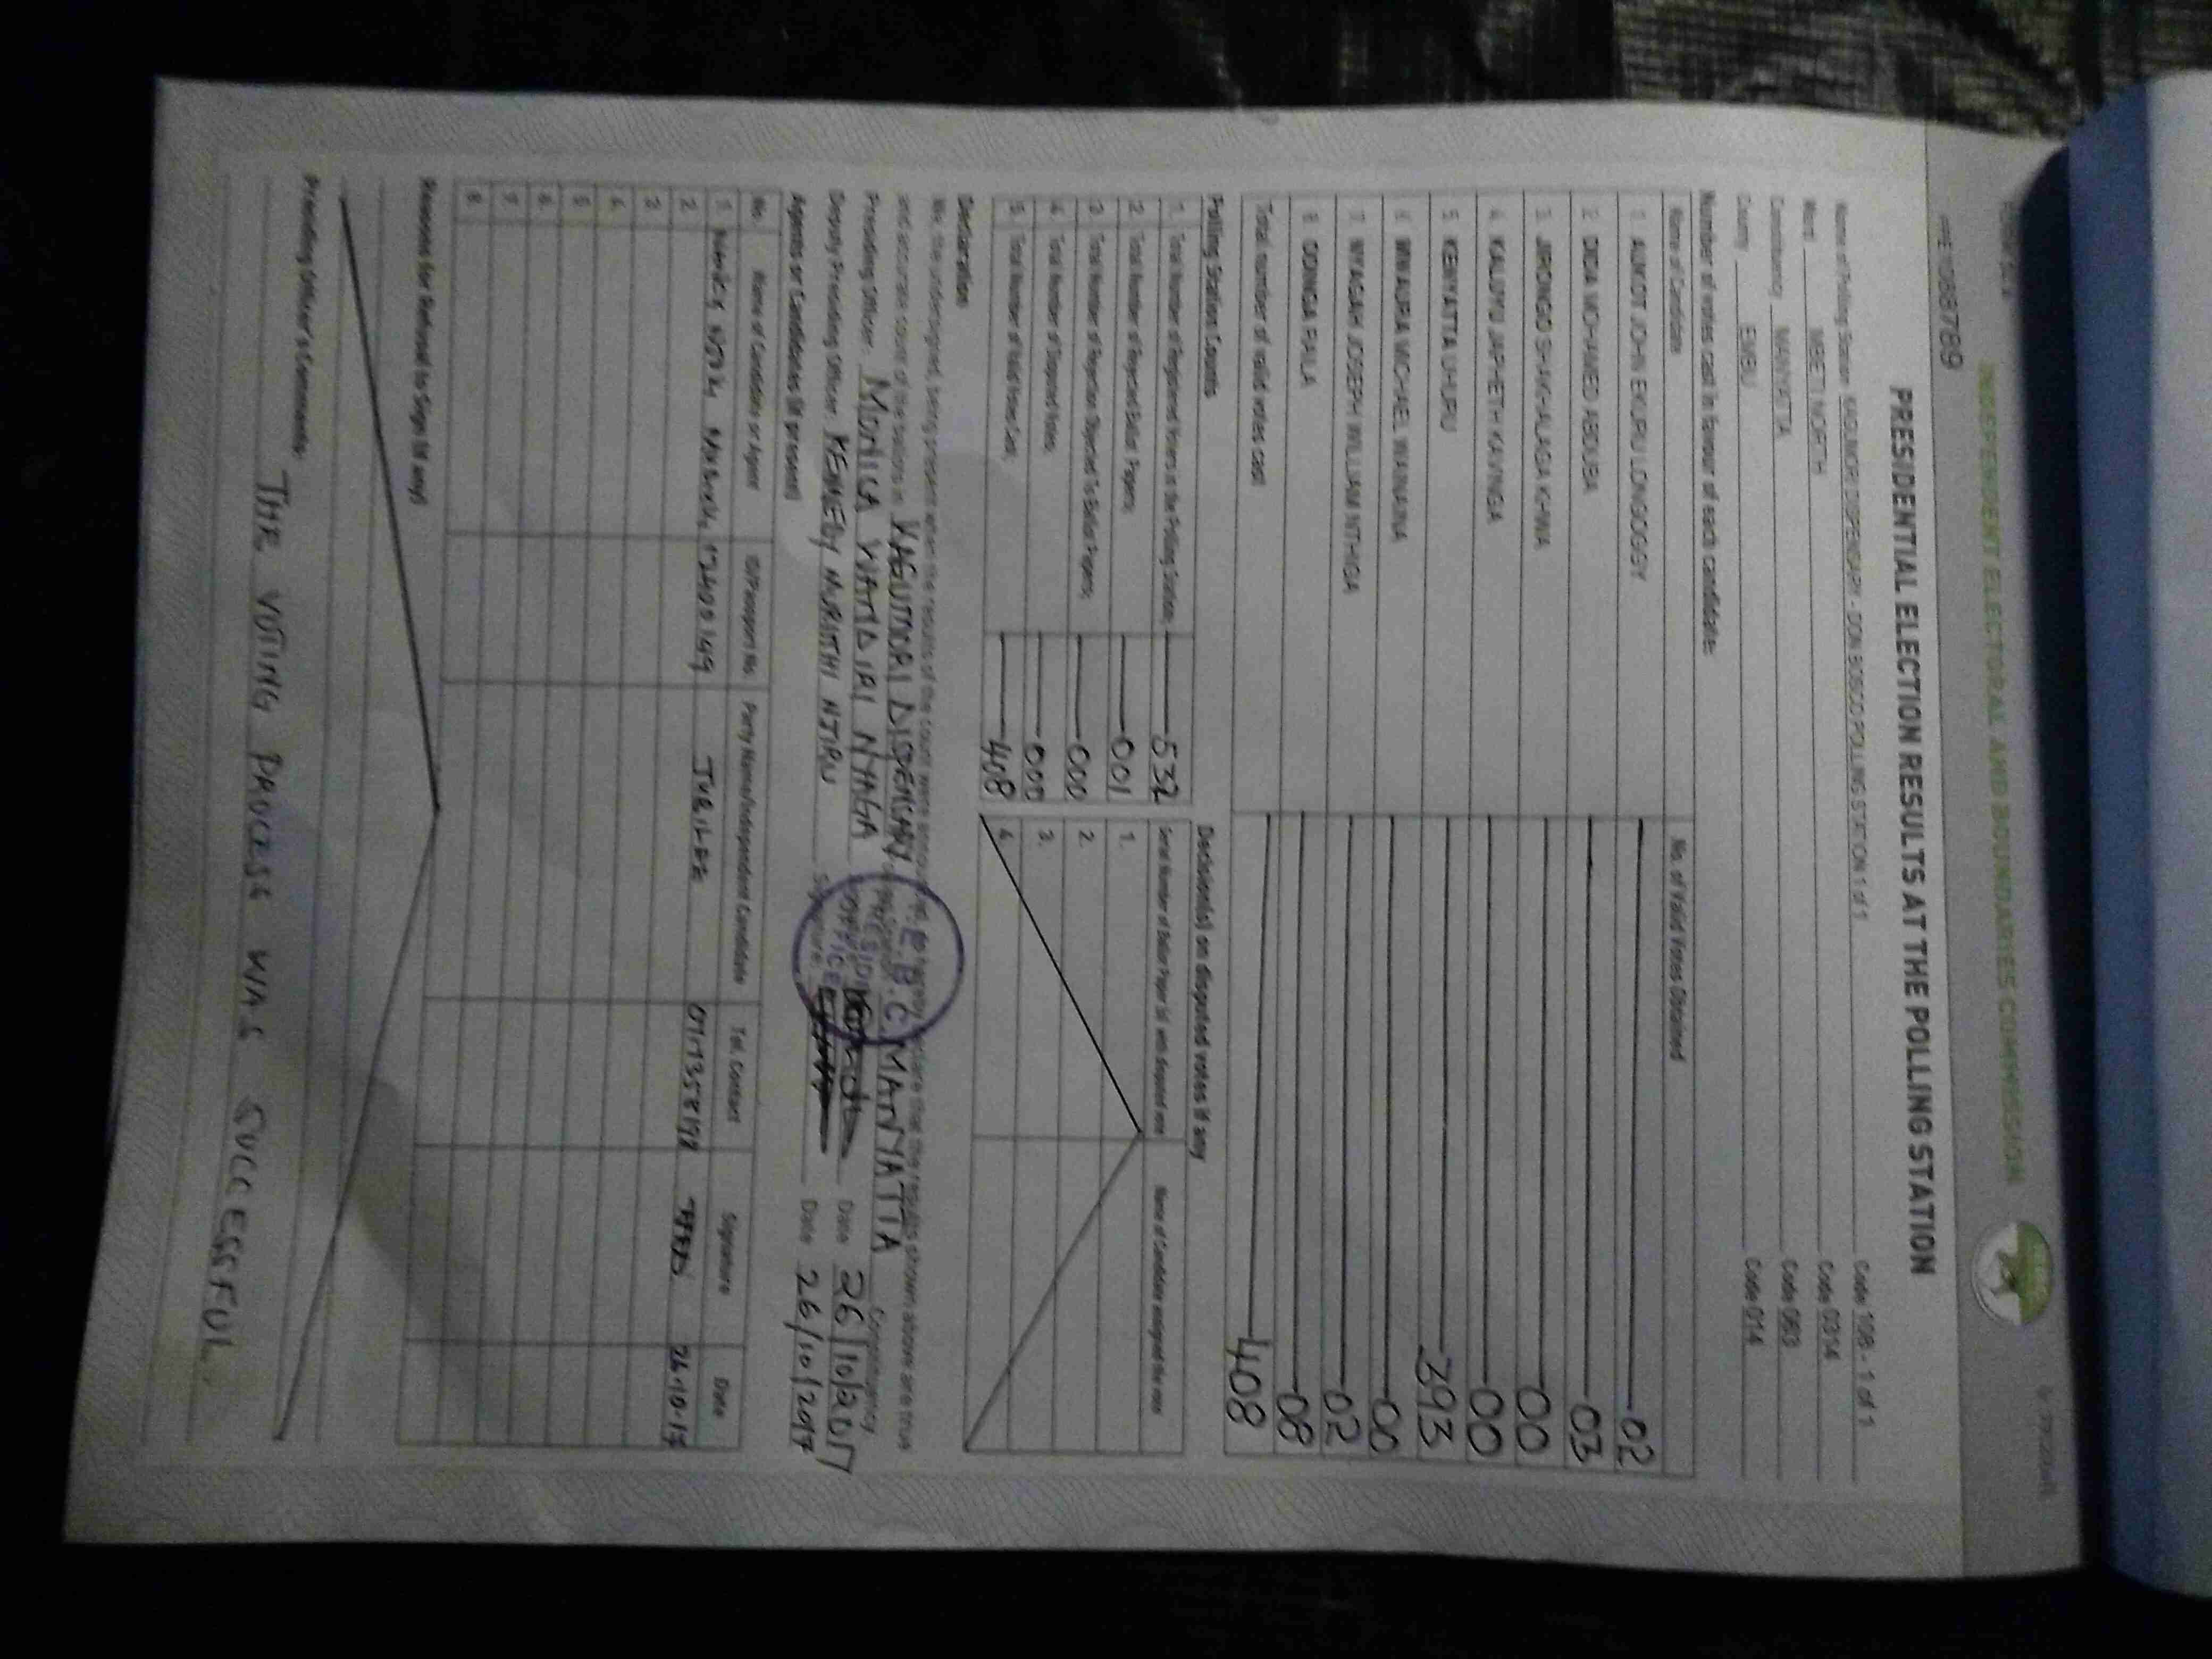 INDEPENDENT ELECTORAL AND BOUNDARIES COMMISSION
PRESIDENTIAL ELECTION RESULTS AT THE POLLING STATION
Name of Polling Station KAGUMORI DISPENSARY - DON BOSCO POLLING STATION 1 of 1 Code 198 - 1 of 1
Ward MBETI NORTH Code 0314
Constituency MANYATTA Code 063
County EMBU Code 014
Number of votes cast in favour of each candidate:
Name of Candidate No. of Valid Votes Obtained
1 AUKOT JOHN EKURU LONGOGGY 02
2 DIDA MOHAMED ABDUBA 03
3 JIRONGO SHAKHALAGA KHWA 00
4 KALUYU JAPHETH KAVINGA 00
5 KENYATTA UHURU 393
6 MWAURA MICHAEL WAINAINA 00
7 NYAGAH JOSEPH WILLIAM NTHIGA 02
8 ODINGA RAILA 08
Total number of valid votes cast 408
Polling Station Counts
1. Total Number of Registered Voters in the Polling Station; 532
2. Total Number of Rejected Ballot Papers; 001
3. Total Number of Rejection Objected To Ballot Papers; 000
4. Total Number of Disputed Votes; 000
5. Total Number of Valid Votes Cast; 408
Decision(s) on disputed votes if any
Serial Number of Ballot Paper (s) with disputed vote Name of Candidate assigned the vote
1.
2.
3.
4.
Declaration
We, the undersigned, being present when the results of the count were announced, do hereby declare that the results shown above are true
and accurate count of the ballots in KAGUMORI DISPENSARY MANYATTA Constituency
Presiding Officer: MONICA WANJIRI NYAGA Date 26/10/2017
Deputy Presiding Officer KENNEDY MURIITHI NJIRU Signature Date 26/10/2017
I.E.B.C.
PRESIDING
OFFICE
Agents or Candidates (if present)
No. Name of Candidate or Agent ID/Passport No. Party Name/Independent Candidate Tel. Contact Signature Date
1. JUBILEE 26-10-17
2.
3.
4.
5.
6.
7.
8.
Reasons for Refusal to Sign (if any)
Presiding Officer's Comments: THE VOTING PROCESS WAS SUCCESSFUL.